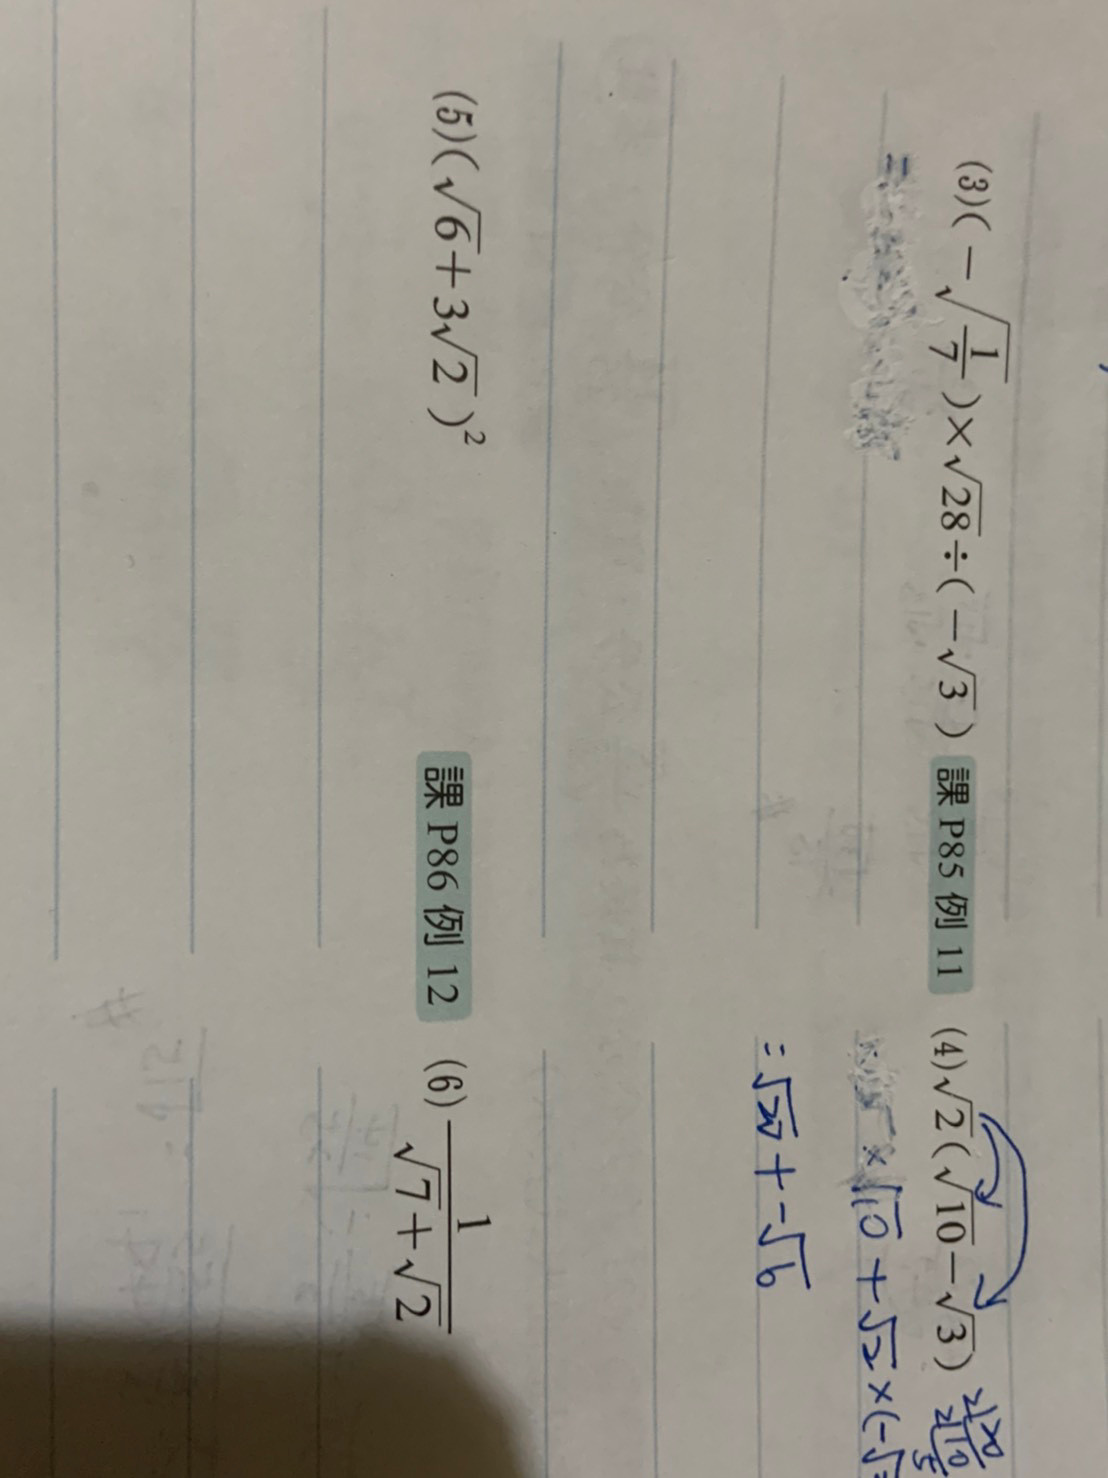 (3)(-√(1/7))×√28÷(-√3) 課 P85 例 11
=
(4)√2(√10-√3)
×√10+√2×(-√
=√20+-√6
(5)(√6+3√2)² 課 P86 例 12
(6) 1/(√7+√2)